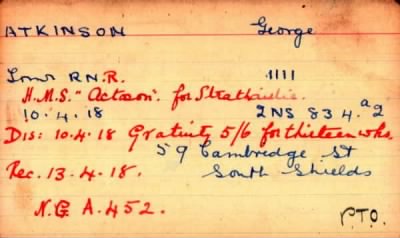 ATKINSON George
R.N.R. 1111
H.M.S. "Actaeon". for
10.4.18 2NS 834.a2
Dis: 10.4.18 Gratuity 5/6 for thirteen wks.
59 Cambridge St
Rec. 13.4.18. South Shields
N.G. A.452.
P.T.O.